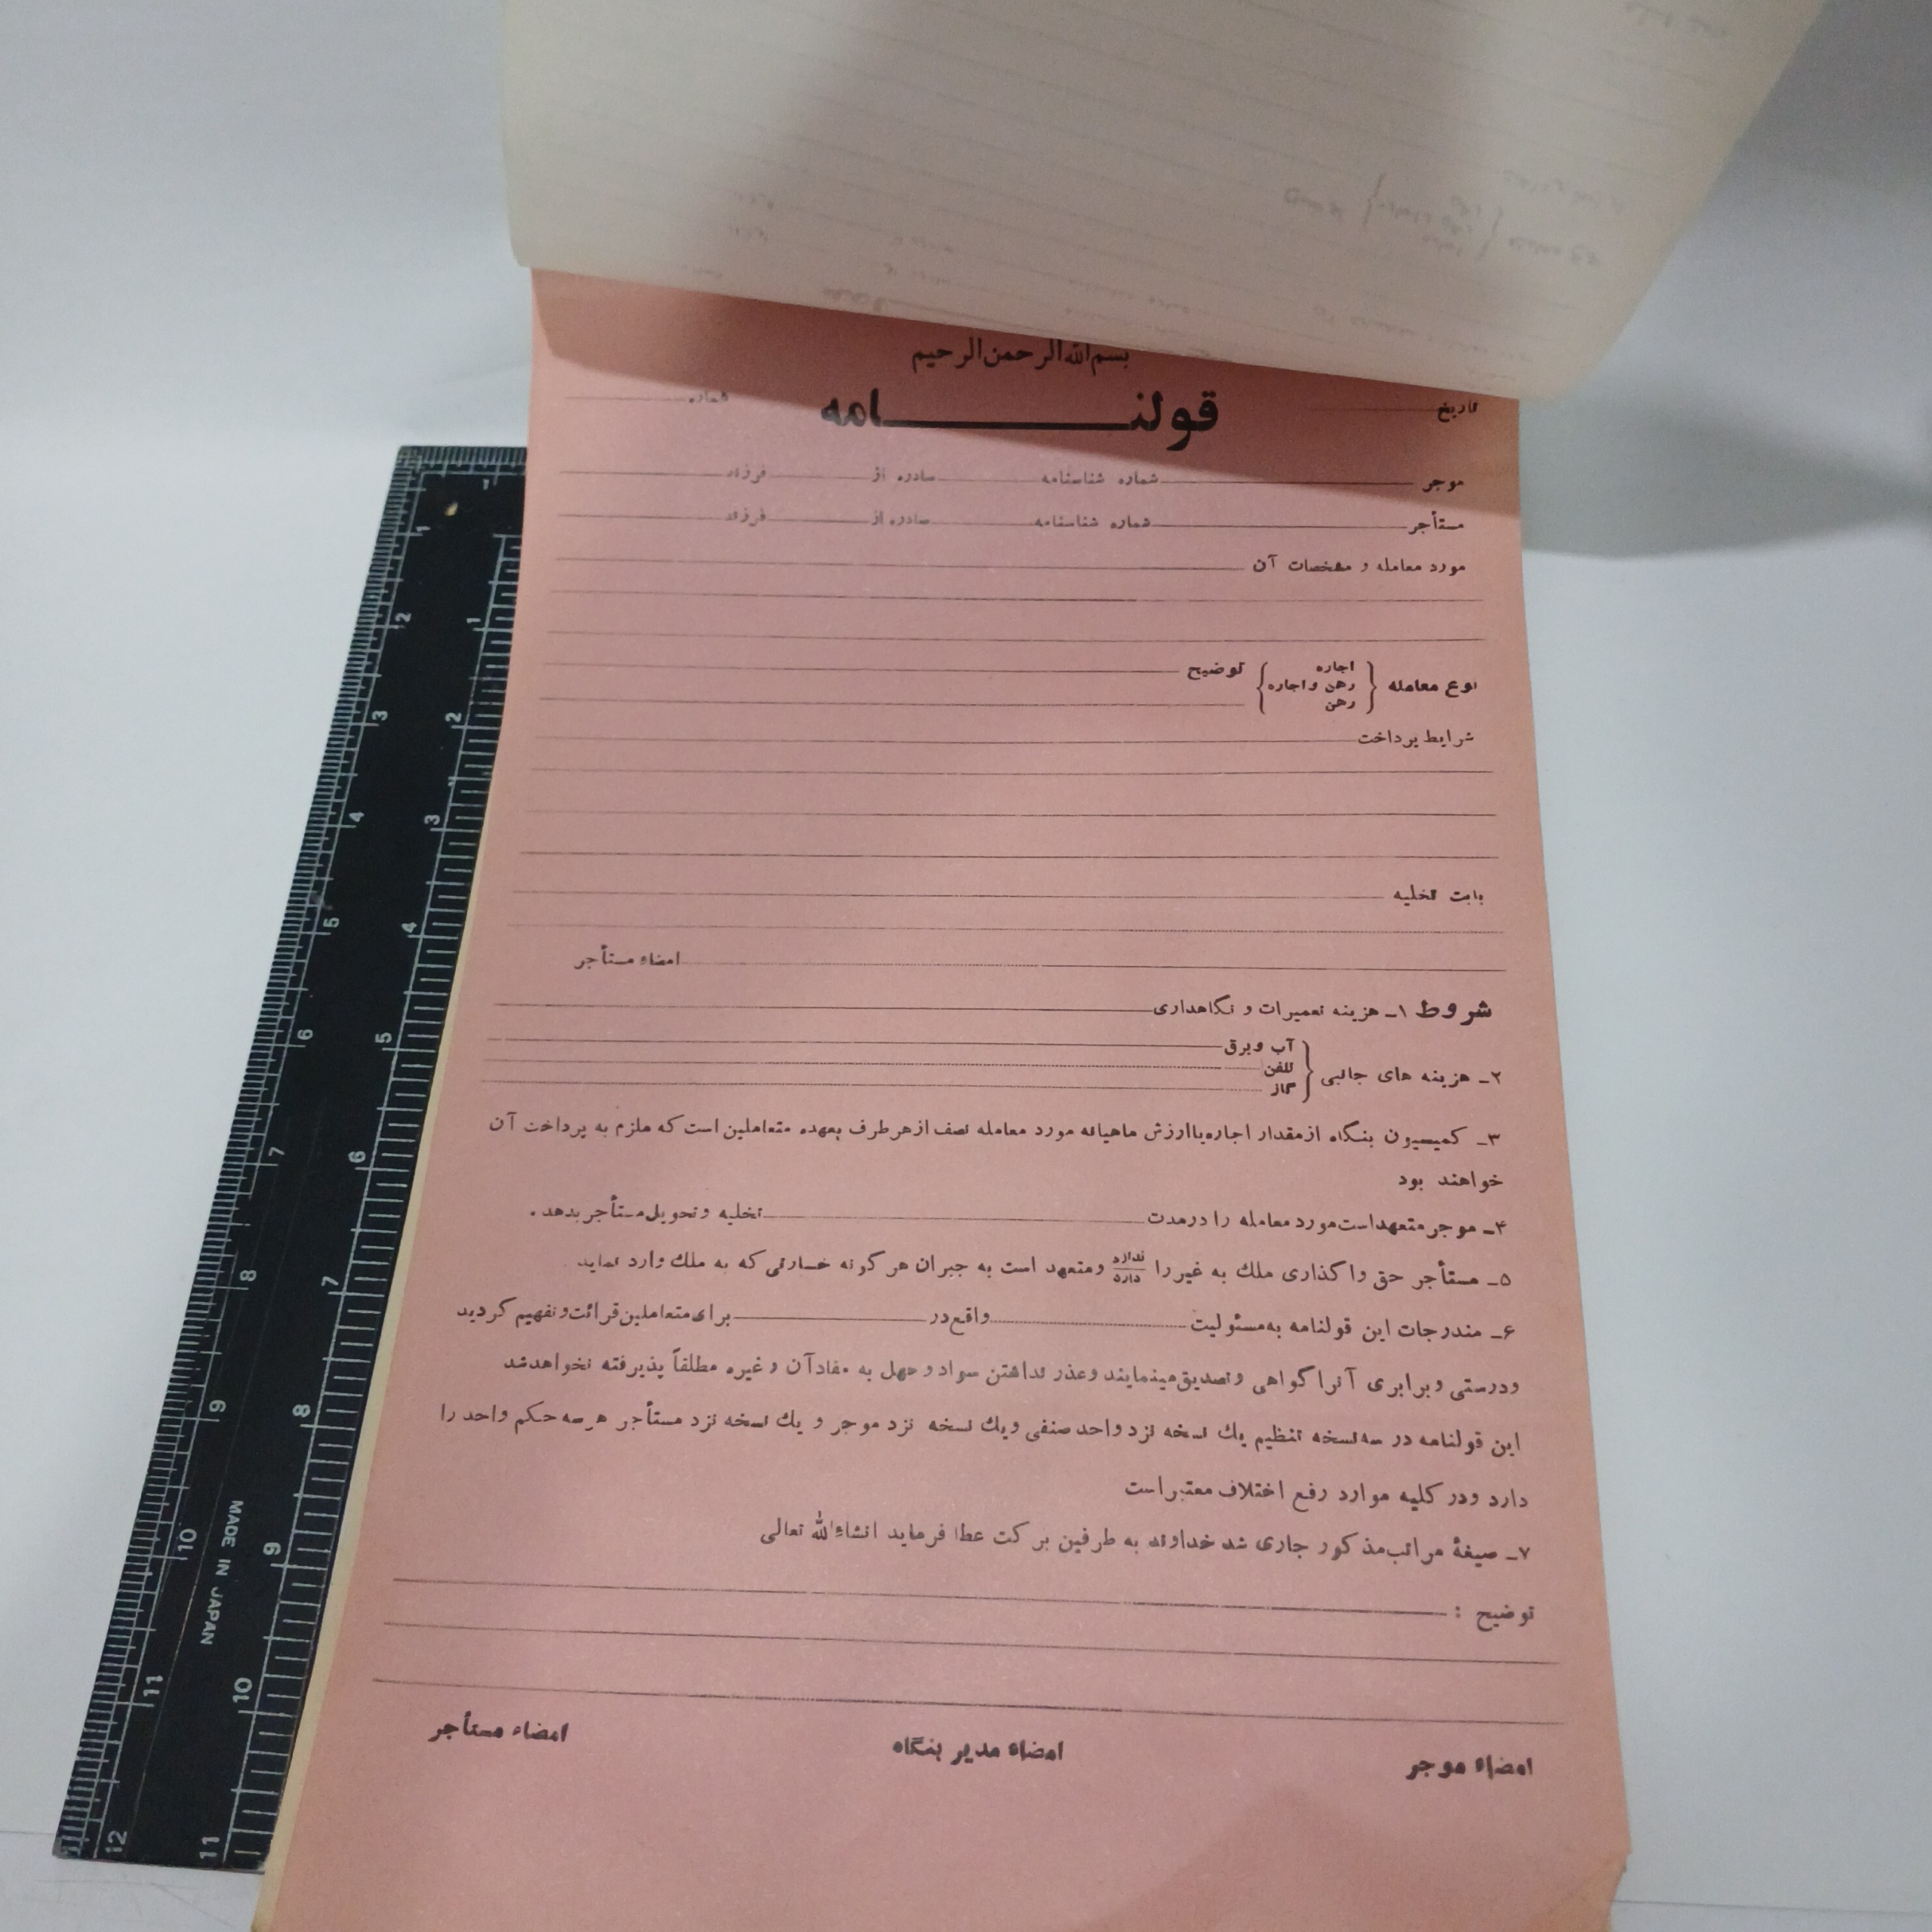 بسم الله الرحمن الرحیم
تاریخ قولنامه شماره
موجر شماره شناسنامه صادره از فرزند
مستأجر شماره شناسنامه صادره از فرزند
مورد معامله و مشخصات آن
نوع معامله { اجاره رهن و اجاره رهن } توضیح
شرایط پرداخت
بابت تخلیه
امضاء مستأجر
شروط ۱ـ هزینه تعمیرات و نگاهداری
۲ـ هزینه های جانبی { آب و برق
تلفن
گاز
۳ـ کمیسیون بنگاه از مقدار اجاره یا ارزش ماهیانه مورد معامله نصف از هر طرف بعهده متعاملین است که ملزم به پرداخت آن
خواهند بود
۴ـ موجر متعهد است مورد معامله را در مدت تخلیه و تحویل مستأجر بدهد.
۵ـ مستأجر حق واگذاری ملك به غیر را ندارد دارد و متعهد است به جبران هر گونه خسارتی که به ملك وارد نماید
۶ـ مندرجات این قولنامه به مسئولیت واقع در برای متعاملین قرائت و تفهیم گردید
و درستی و برابری آنرا گواهی و تصدیق مینمایند و عذر نداشتن سواد و جهل به مفاد آن و غیره مطلقاً پذیرفته نخواهد شد
این قولنامه در سه نسخه تنظیم یك نسخه نزد واحد صنفی و یك نسخه نزد موجر و یك نسخه نزد مستأجر هر سه حکم واحد را
دارد و در کلیه موارد رفع اختلاف معتبر است
۷ـ صیغهٔ مراتب مذکور جاری شد خداوند به طرفین برکت عطا فرماید انشاءالله تعالی
توضیح :
امضاء موجر امضاء مدیر بنگاه امضاء مستأجر
1 2 3 4 5 6 7 8 9 10 11 12
1 2 3 4 5 6 7 8 9 10 11
MADE IN JAPAN